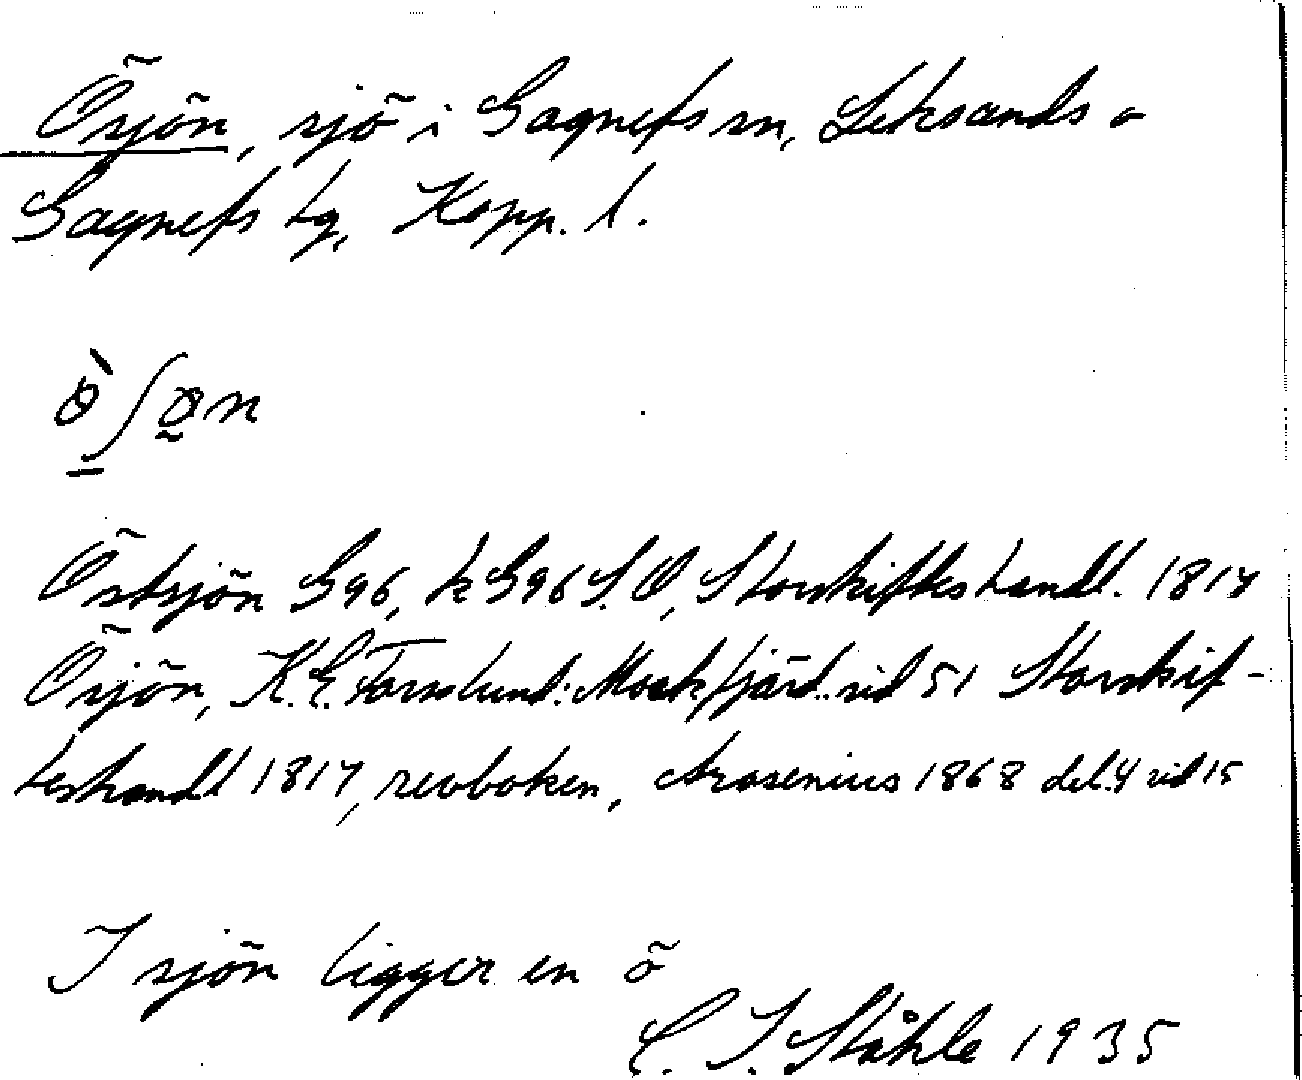 Ösjön, sjö i Gagnefs sn, Leksands o
Gagnefs tg, Kopp. l.
Östsjön G96, k G96 S.O, Storskifteshandl. 1817
Ösjön, K.E. Forslund: Mockfjärd.. sid 51 Storskif-
teshandl 1817, revboken, Arosenius 1868 del.4 sid 15
I sjön ligger en ö
C. I. Ståhle 1935